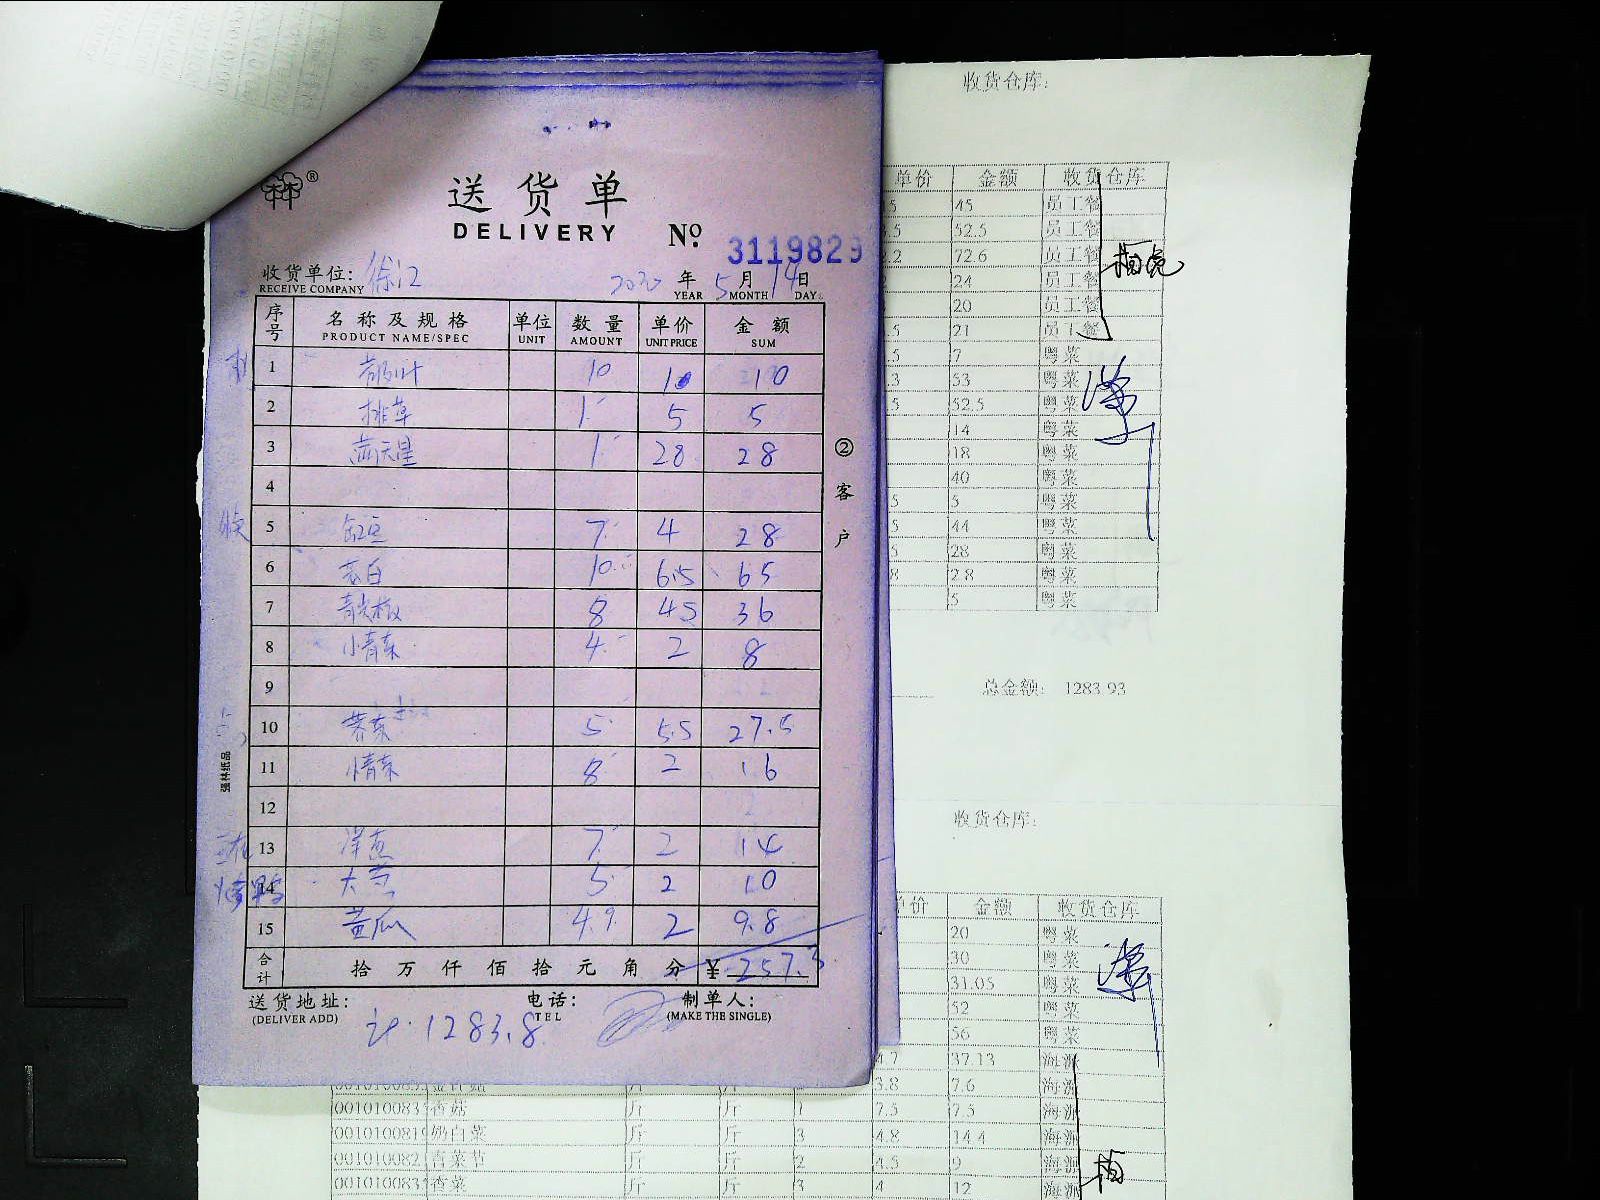 收货仓库:
送货单
DELIVERY
№ 3119829
收货单位: 徐江 2020 年 5 月 14 日
RECEIVE COMPANY YEAR MONTH DAY
序号 名称及规格 单位 数量 单价 金额
PRODUCT NAME/SPEC UNIT AMOUNT UNIT PRICE SUM
1 10 1 10
2 排草 1 5 5
3 满天星 1 28 28
4
5 豇豆 7 4 28
6 茭白 10 6.5 65
7 青尖椒 8 4.5 36
8 小青菜 4 2 8
9
10 5 5.5 27.5
11 小青菜 8 2 16
12
13 洋葱 7 2 14
14 大芹 5 2 10
15 黄瓜 4.9 2 9.8
合计 拾 万 仟 佰 拾 元 角 分 ¥ 257.3
送货地址: 电话: 制单人:
(DELIVER ADD) TEL (MAKE THE SINGLE)
计.1283.8
②客户
强林纸品
单价 金额 收货仓库
45 员工餐
52.5 员工餐
72.6 员工餐
24 员工餐
20 员工餐
21 员工餐
7 粤菜
53 粤菜
52.5 粤菜
14 粤菜
18 粤菜
40 粤菜
5 粤菜
44 粤菜
28 粤菜
2.8 粤菜
5 粤菜
总金额: 1283.93
收货仓库:
单价 金额 收货仓库
20 粤菜
30 粤菜
31.05 粤菜
52 粤菜
56 粤菜
4.7 37.13 海派
金针菇 斤 斤 3.8 7.6 海派
香菇 斤 斤 1 7.5 7.5 海派
奶白菜 斤 斤 3 4.8 14.4 海派
青菜节 斤 斤 2 4.5 9 海派
香菜 斤 斤 3 4 12 海派